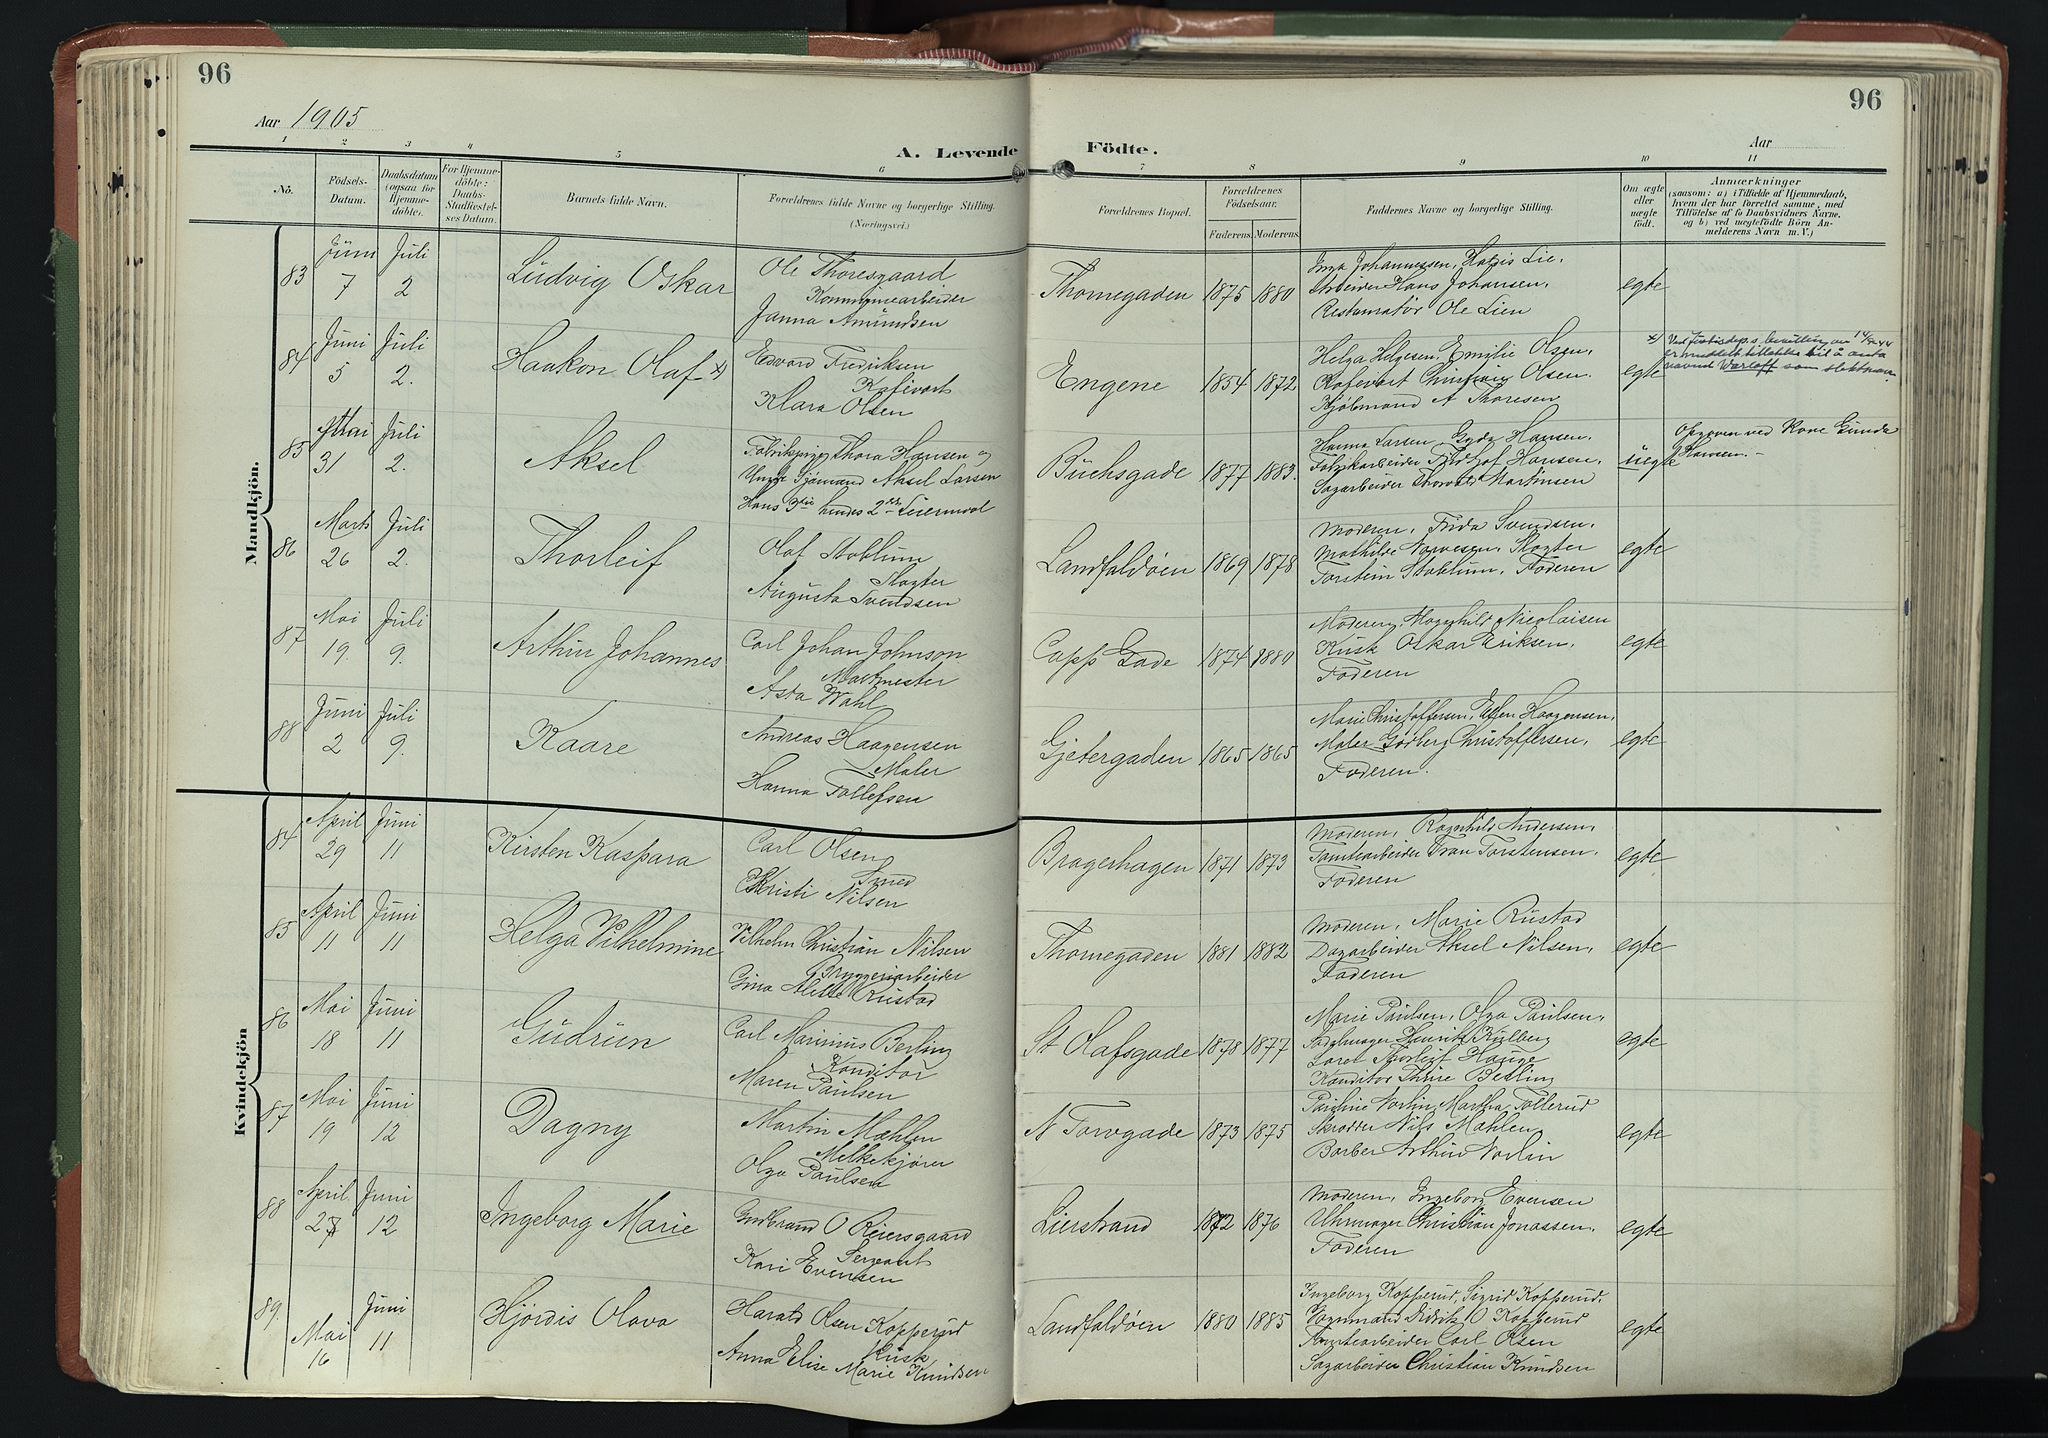 96
96
Aar 1905
Aar
A. Levende Födte.
1 2 3 4 5 6 7 8 9 10 11
No.
Födsels-Datum.
Daabsdatum (ogsaa for Hjemmedöbte).
For Hjemmedöbte: Daabs-Stadfæstelses Datum.
Barnets fulde Navn.
Forældrenes fulde Navne og borgerlige Stilling. (Næringsvei.)
Forældrenes Bopæl.
Forældrenes Födselsaar.
Faderens. Moderens.
Faddernes Navne og borgerlige Stilling.
Om ægte eller uægte födt.
Anmærkninger
(saasom: a) i Tilfælde af Hjemmedaab, hvem der har forrettet samme, med Tilföielse af to Daabsvidners Navne, og b) ved uægtefödte Börn Anmelderens Navn m. V.)
Mandkjön.
83
Juni 7
Juli 2
Ludvig Oskar
Ole Thoresgaard
Kommunearbeider
Janna Amundsen
Thornegaden
1875 1880
Inga Johannessen, Lie,
Arbeider Hans Johansen,
Restauratör Ole Lien
egte
84
Juni 5
Juli 2.
Haakon Olaf x)
Edvard Fredriksen
Kafévert
Klara Olsen
Engene
1854 1872
Helga Helgesen, Emilie Olsen,
Kafévert Christian Olsen,
Kjöbmand A Thoresen
egte
navnet Warloff som slektsnavn.
85
Mai 31
Juli 2.
Aksel
Fabrikspige Thora Hansen og
Ungk Sjömand Aksel Larsen
Hans 3die hendes 2det Leiermaal
Buchsgade
1877 1883.
Hanna Larsen, Gyda Hansen,
Fabrikarbeider Hansen,
Sagarbeider Martinsen
uegte
Opgoven ved Kone Gunda Hansen. -
86
Marts 26
Juli 2.
Thorleif
Olaf Stoblum
Slagter
Augusta Svendsen
Landfaldöen
1869 1878
Moderen, Frida Svendsen,
Mathilde Narvesen, Slagter
Torstein Stoblum, Faderen
egte
87
Mai 19.
Juli 9.
Arthur Johannes
Carl Johan Johnson
Asta Wahl
Capps Gade
1874 1880
Moderen, Magnhild Nicolaisen
Kusk Oskar Eriksen,
Faderen
egte
88
Juni 2
Juli 9.
Kaare
Andreas Haagensen
Maler
Hanna Tollefsen
Gjetergaden
1865 1865
Marie Christoffersen, Ellen Haagensen,
Maler Godberg Christoffersen,
Faderen.
egte
Kvindekjön
84
April 29
Juni 11
Kirsten Kaspara
Carl Olsen
Smed
Kristi Nilsen
Bragerhagen
1871 1873
Moderen, Ragnhild Andersen,
Tomtearbeider Torstensen.
Faderen
egte
85
April 11
Juni 11
Helga Vilhelmine
Vilhelm Christian Nilsen
Bryggeriarbeider
Gina Alette Rustad
Thornegaden
1881 1882
Moderen, Marie Rustad
Dagarbeider Aksel Nilsen,
Faderen
egte
86
Mai 18
Juni 11
Gudrun
Carl Marinius Berling
Konditor
Maren Paulsen
St Olafsgade
1878 1877
Marie Paulsen, Olga Paulsen,
Sadelmager Henrik Kulberg
Thorleif Hauge
Konditor Berling
egte
87
Mai 19
Juni 12
Dagny
Martin Mahlen
Melkekjörer
Olga Paulsen
N Torvgade
1873 1875
Pauline Norlin, Martha Tollerud
Skrædder Nils Mahlen,
Barber Arthur Norlin
egte
88
April 27
Juni 12
Ingeborg Marie
Gudbrand O Reiersgaard
Sergeant
Kari Evensen
Lierstrand
1872 1876
Moderen, Ingeborg Evensen
Uhrmager Christian Jonassen,
Faderen
egte
89.
Mai 16
Juni 11
Hjördis Olava
Harald Olsen Kopperud
Kusk,
Anna Elise Marie Knudsen
Landfaldöen
1880 1885
Ingeborg Kopperud, Sigrid Kopperud,
Vognmand Didrik O Kopperud
Tomtearbeider Carl Olsen
Sagarbeider Christian Knudsen
egte